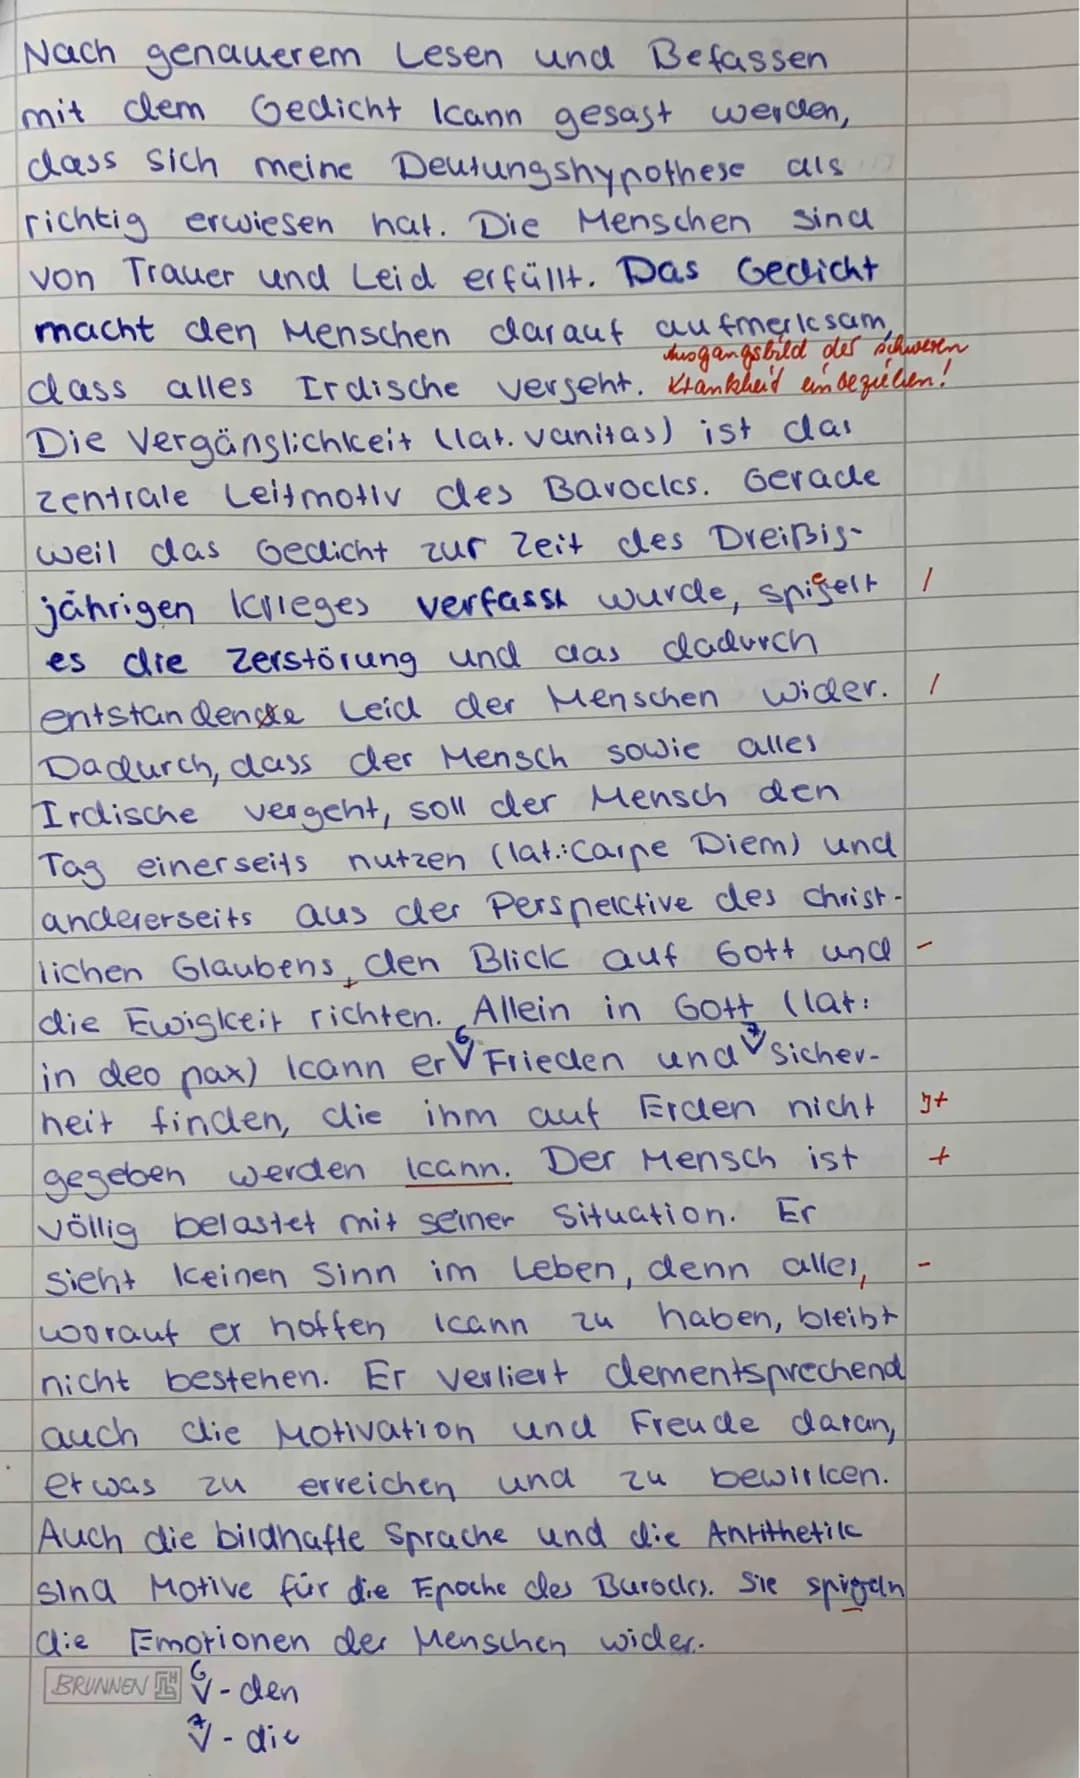 Nach genauerem Lesen und Befassen
mit dem Gedicht kann gesagt werden,
dass sich meine Deutungshypothese als
richtig erwiesen hat. Die Menschen sind
von Trauer und Leid erfüllt. Das Gedicht
macht den Menschen darauf aufmerksam,
Ausgangsbild der schweren
dass alles Irdische vergeht. Krankheit einbeziehen!
Die Vergänglichkeit (lat. vanitas) ist das
zentrale Leitmotiv des Barocks. Gerade
weil das Gedicht zur Zeit des Dreißig-
jährigen Krieges verfasst wurde, spigelt /
es die Zerstörung und das dadurch
entstandende Leid der Menschen wider. /
Dadurch, dass der Mensch sowie alles
Irdische vergeht, soll der Mensch den
Tag einerseits nutzen (lat.: Carpe Diem) und
andererseits aus der Perspektive des christ-
lichen Glaubens, den Blick auf Gott und -
die Ewigkeit richten. Allein in Gott (lat:
in deo pax) kann er 6 V Frieden und 7 V Sicher-
heit finden, die ihm auf Erden nicht
gegeben werden kann. Der Mensch ist +
völlig belastet mit seiner Situation. Er
sieht keinen Sinn im Leben, denn alles, -
worauf er hoffen kann zu haben, bleibt
nicht bestehen. Er verliert dementsprechend
auch die Motivation und Freude daran,
etwas zu erreichen und zu bewirken.
Auch die bildhafte Sprache und die Antithetik
sind Motive für die Epoche des Barocks. Sie spigeln
die Emotionen der Menschen wider.
BRUNNEN 6 V - den
7 V - die